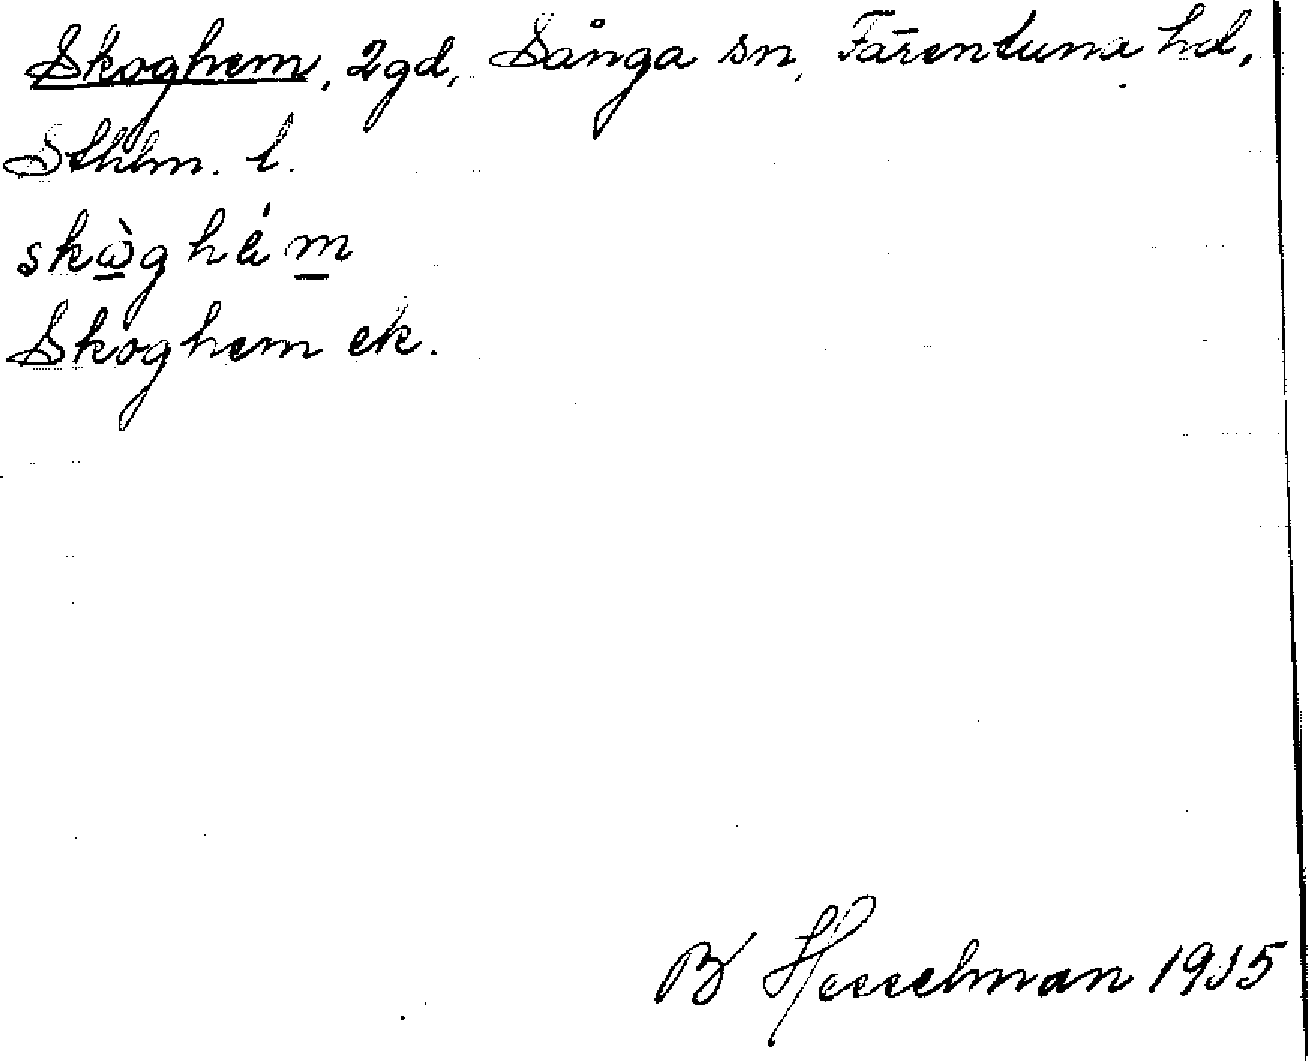 Skoghem, 2gd, Sånga sn, Färentuna hd,
Sthlm. l.
skὼghém
Skoghem ek.
B Hesselman 1935